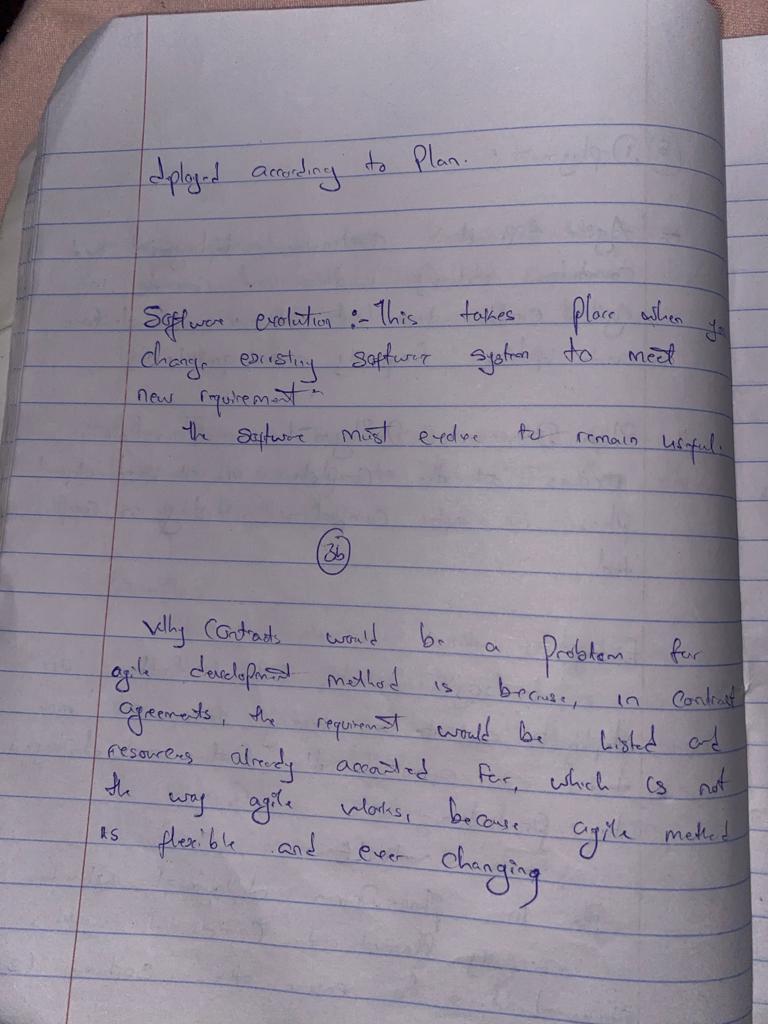 dployed according to Plan.
Software evolution :- This takes place when you
change existing software system to meet
new requirement.
the software must evolve to remain useful.
3b
Why Contracts would be a Problem for
agile development method is because, in Contract
agreements, the requirement would be Listed and
resources already accounted for, which is not
the way agile works, because agile method
is flexible and ever changing